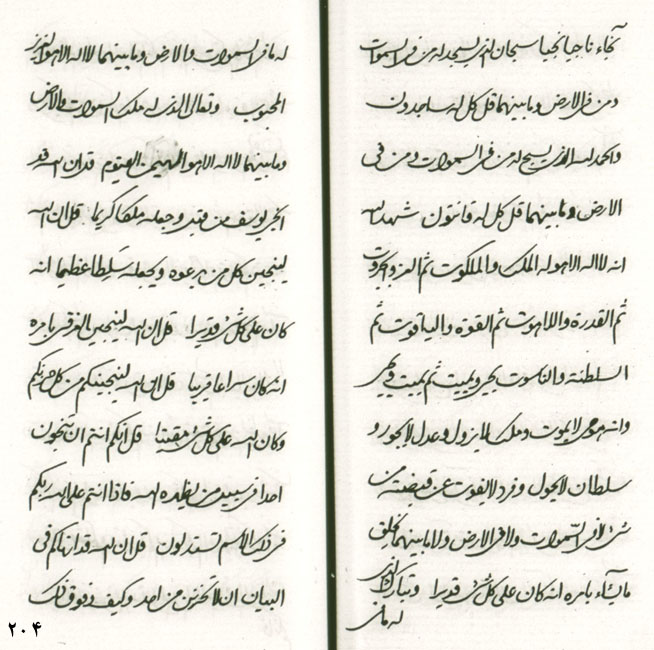 نجاء ناجیا نجیا سبحان الذی یسجد له من فی السموات
ومن فی الارض وما بینهما قل کل له ساجدون
والحمد لله الذی یسبح له من فی السموات ومن فی
الارض وما بینهما قل کل له قانتون شهد الله
انه لا اله الا هو له الملک والملکوت ثم العز والجبروت
ثم القدرة واللاهوت ثم القوة والیاقوت ثم
السلطنة والناسوت یحیی ویمیت ثم یمیت ویحیی
وانه هو حی لا یموت وملک لا یزول وعدل لا یجور و
سلطان لا یحول وفرد لا یفوت عن قبضته من
شئ لا فی السموات ولا فی الارض ولا ما بینهما یخلق
ما یشآء بامره انه کان علی کل شئ قدیرا وتبارک الذی
له ما فی
له ما فی السموات والارض وما بینهما لا اله الا هو العزیز
المحبوب وتعالی الذی له ملک السموات والارض
وما بینهما لا اله الا هو المهیمن القیوم قد ان الله قد
انجی یوسف من قبل وجعله ملکا کریما قل ان الله
لینجین کل من یدعوه ویجعله سلطانا عظیما انه
کان علی کل شئ قدیرا قل ان الله لینجین الغرقی بامره
انه کان سراعا قریبا قل ان الله لینجینکم من کل حزنکم
وکان الله علی کل شئ مقیتا قل انکم انتم ان تنجون
احدا فی سبیل من یظهره الله فاذا انتم علی الله ربکم
فی ذلک الاسم تستدلون قل ان الله قد انهاکم فی
البیان ان لا تحزنن من احد وکیف وفوق ذلک
۲۰۴